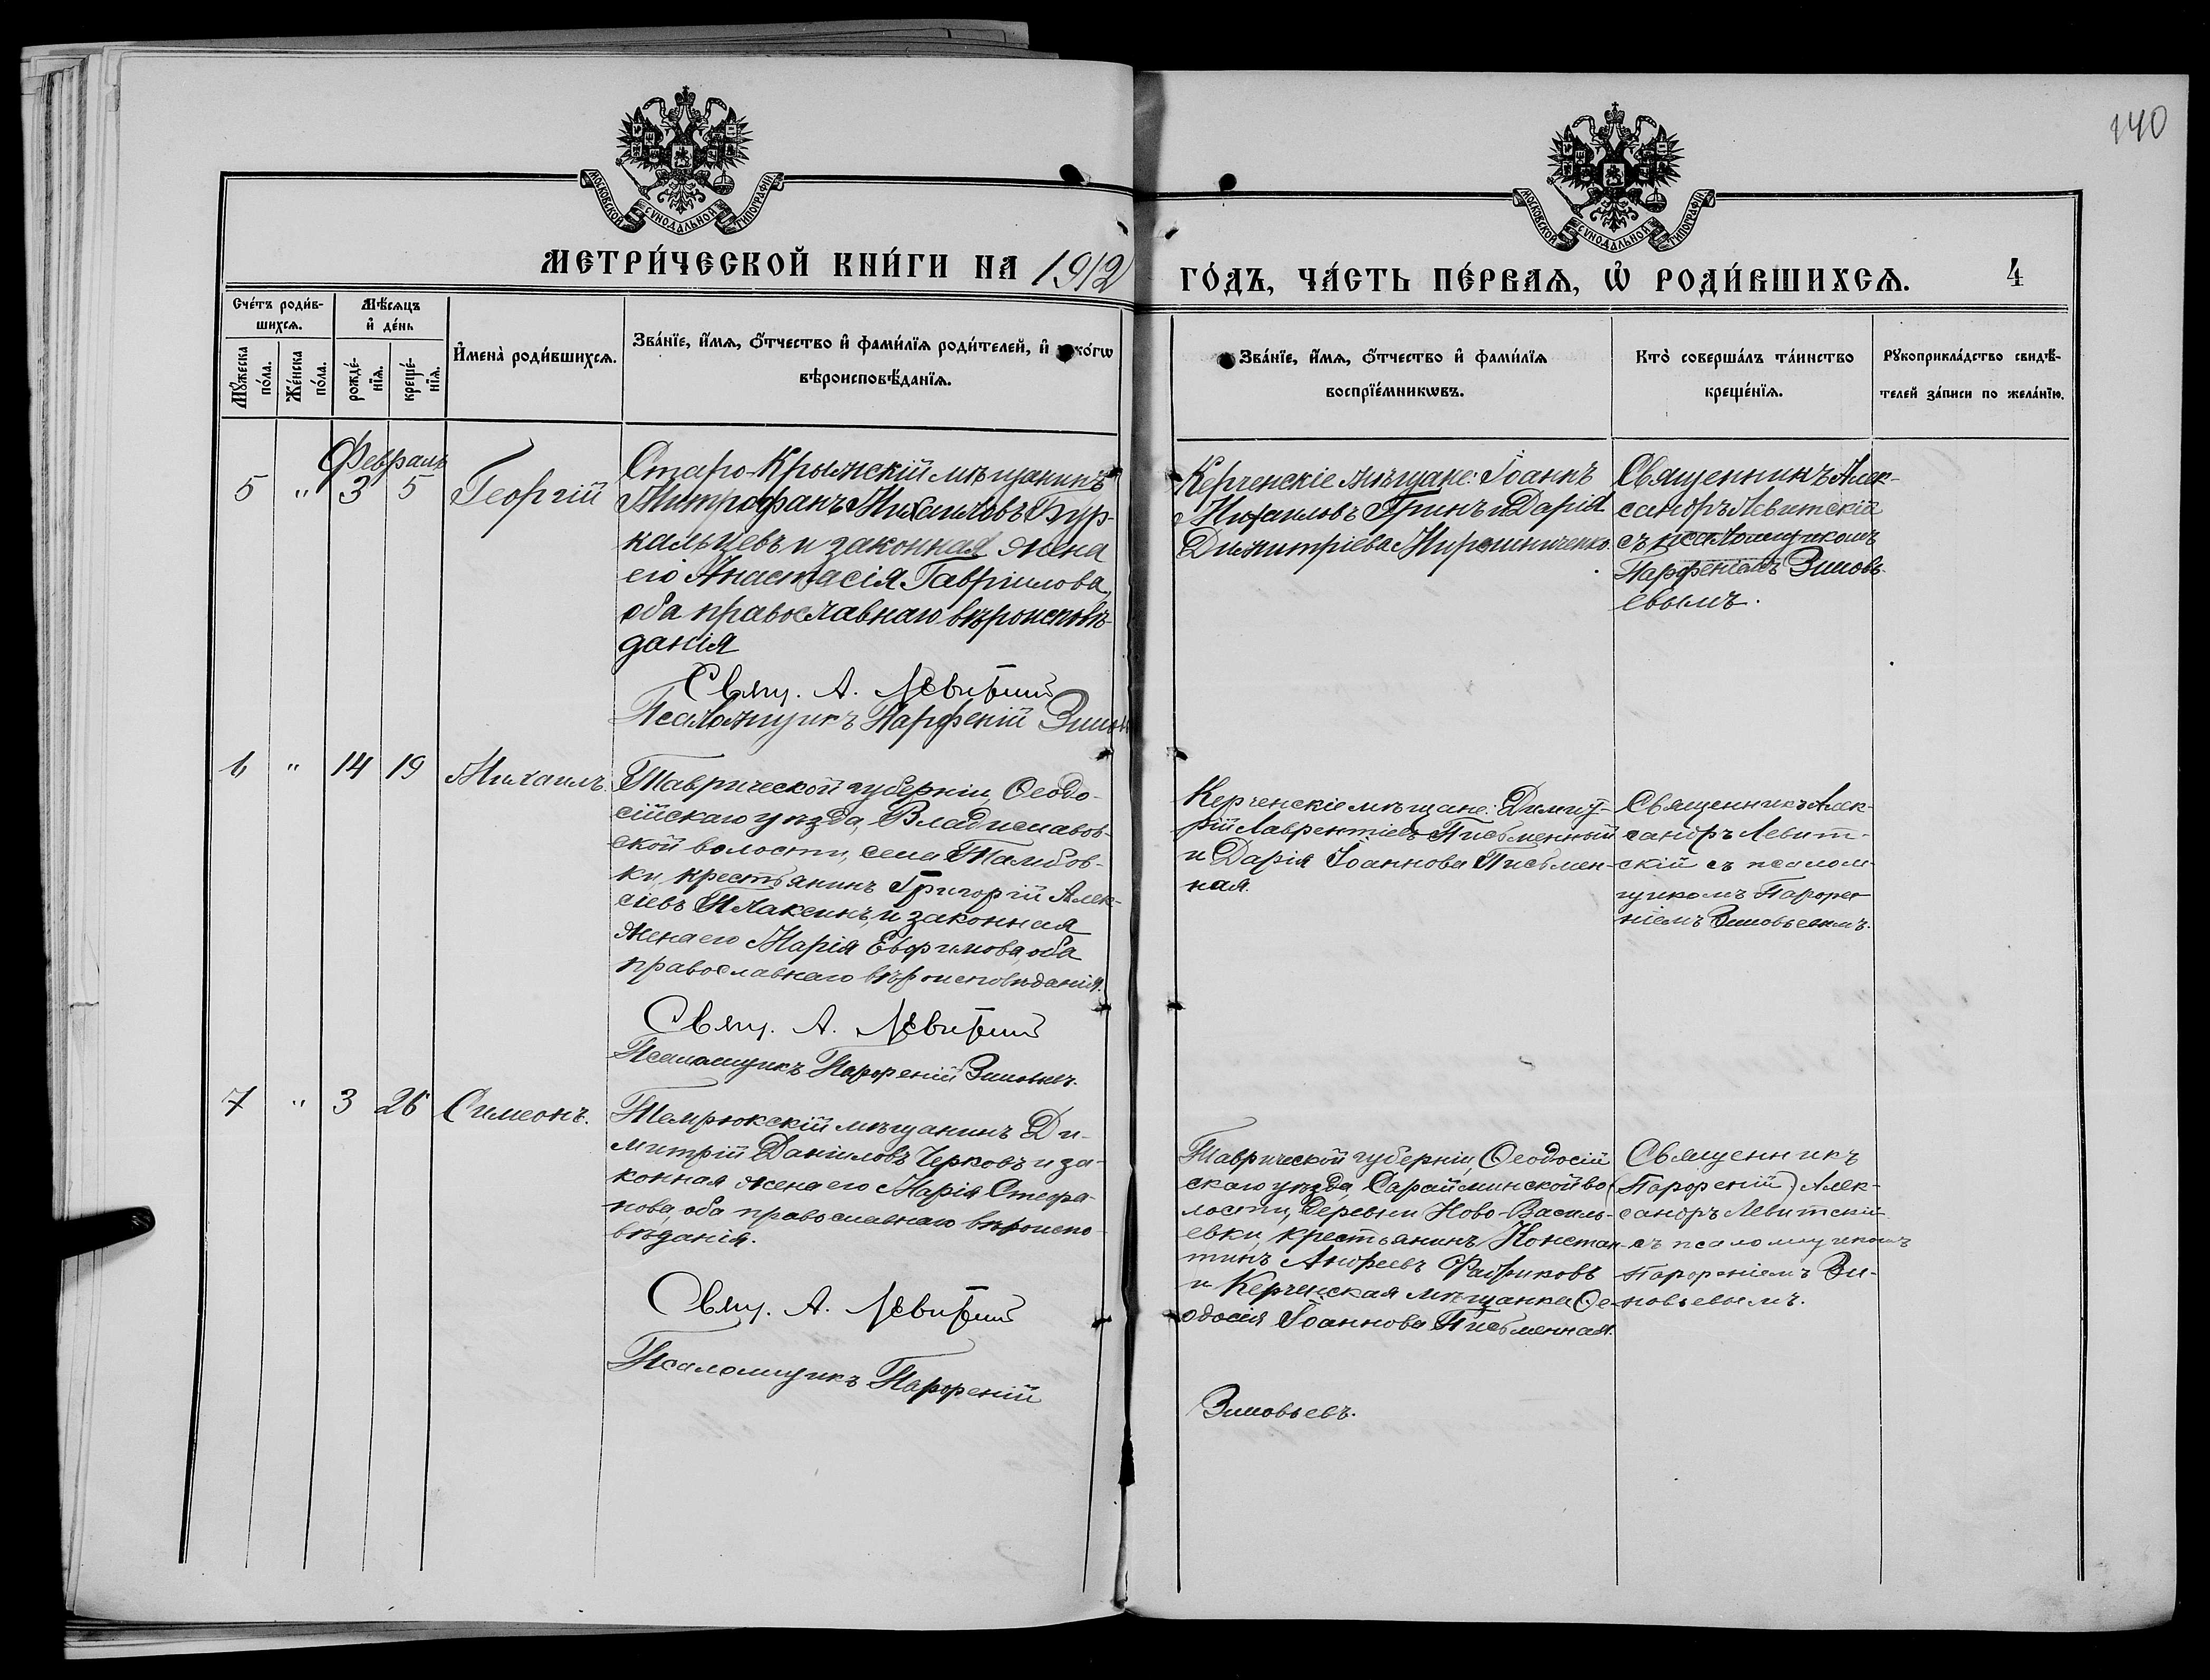 140
МОСКОВСКОЙ СУНОДАЛЬНОЙ ТИПОГРАФІИ
МОСКОВСКОЙ СУНОДАЛЬНОЙ ТИПОГРАФІИ
МЕТРИ́ЧЕСКОЙ КНИ́ГИ НА 1912
ГО́ДЪ, ЧА́СТЬ ПЕ́РВАѦ, Ѡ҆ РОДИ́ВШИХСѦ. 4
Сче́тъ роди́в-
шихсѧ.
Мѣ́сѧцъ
и҆ де́нь
Мꙋ́жеска
по́ла.
Же́нска
по́ла.
рожде́-
нїѧ.
креще́-
нїѧ.
И҆мена̀ роди́вшихсѧ.
Зва́нїе, и҆́мѧ, ѻ҆́тчество и҆ фами́лїѧ роди́телей, и҆ како́гѡ
вѣроисповѣ́данїѧ.
Зва́нїе, и҆́мѧ, ѻ҆́тчество и҆ фами́лїѧ
воспрїе́мникѡвъ.
Кто̀ соверша́лъ та́инство
креще́нїѧ.
Рꙋкоприкла́дство свидѣ́-
телей за́писи по жела́нїю.
Февраль
5 " 3 5 Георгій
Старо-Крымскій мѣщанинъ
Митрофанъ Михаиловъ Бур-
кальцевъ и законная жена
его Анастасія Гавріилова,
оба православнаго вѣроисповѣ-
данія
Свящ. А. Левитскій
Псаломщикъ Парфеній Зиновь
Керченскіе мѣщане: Іоаннъ
Михаиловъ Гринъ и Дарія
Димитріева Мирошниченко.
Священникъ Алек-
сандръ Левитскій
съ псаломщикомъ
Парфеніемъ Зиновь-
евымъ.
6 " 14 19 Михаилъ.
Таврической губерніи, Ѳеодо-
сійскаго уѣзда, Владиславов-
ской волости, села Тамбов-
ки, крестьянинъ Григорій Алек-
сіевъ Плаксинъ, и законная
жена его Марія Евфимова, оба
православнаго вѣроисповѣданія.
Свящ. А. Левитскій
Псаломщикъ Парфеній Зиновьевъ.
Керченскіе мѣщане: Димит-
рій Лаврентіевъ Письменный
и Дарія Іоаннова Письмен-
ная.
Священникъ Алек-
сандръ Левит-
скій съ псалом-
щикомъ Парфе-
ніемъ Зиновьевымъ.
7 " 3 26 Симеонъ.
Темрюкскій мѣщанинъ Ди-
митрій Даніиловъ Черковъ и за-
конная жена его Марія Стефа-
нова, оба православнаго вѣроиспо-
вѣданія.
Свящ. А. Левитскій
Псаломщикъ Парфеній
Таврической губерніи, Ѳеодосій-
скаго уѣзда, Сарайминской во-
лости, деревни Ново-Василь-
евки, крестьянинъ Констан-
тинъ Андреевъ Фабриковъ
и Керченская мѣщанка Ѳе-
одосія Іоаннова Письменная.
Зиновьевъ.
Священникъ
(Парфеній) Алек-
сандръ Левитскій
съ псаломщикомъ
Парфеніемъ Зи-
новьевымъ.